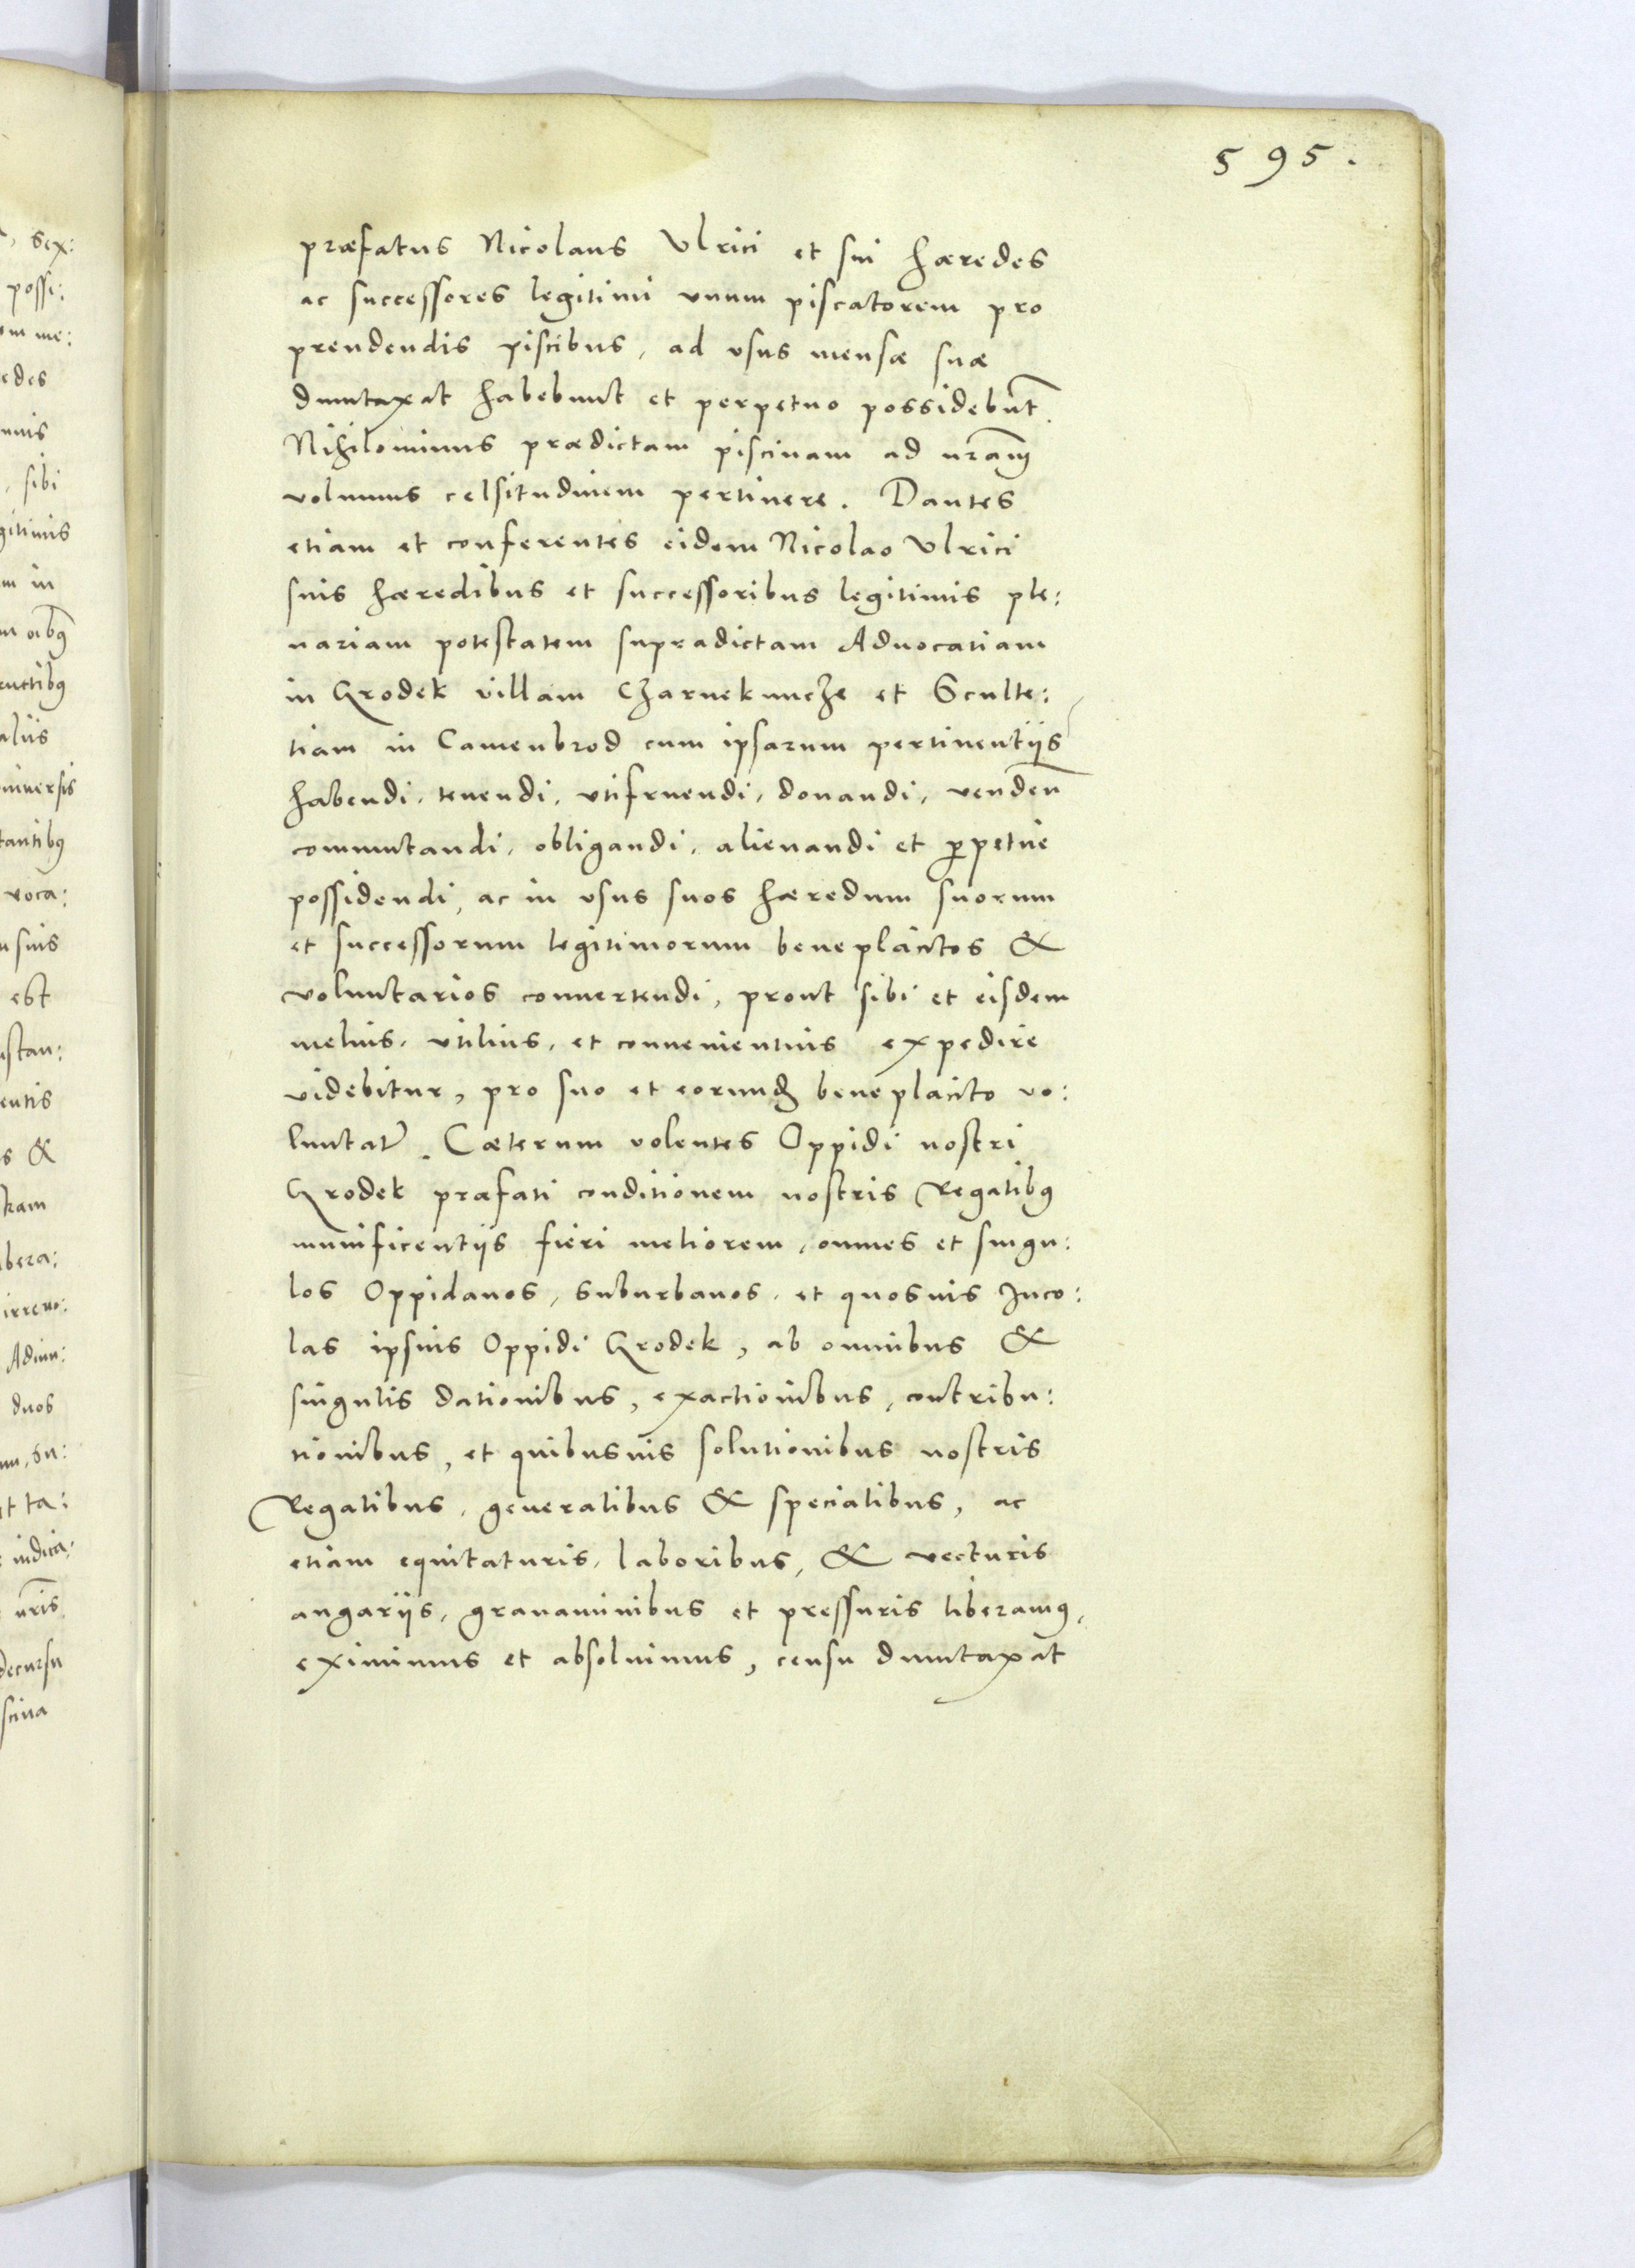 595.
præfatus Nicolaus Ulrici et sui hæredes
ac successores legitimi vnum piscatorem pro
prendendis piscibus, ad vsus mensæ suæ
duntaxat habebunt et perpetuo possidebūt.
Nihilominus prædictam piscinam ad nr̄am
volumus celsitudinem pertinere. Dantes
etiam et conferentes eidem Nicolao Ulrici
suis hæredibus et successoribus legitimis ple:
nariam potestatem supradictam Aduocatiam
in Grodek villam Czarnekuncze et Sculte:
tiam in Camenbrod cum ipsarum pertinentijs
habendi, tenendi, vtifruendi, donandi, venden̄
commutandi, obligandi, alienandi et ꝑpetue
possidendi, ac in vsus suos hæredum suorum
et successorum legitimorum beneplacitos &
voluntarios conuertendi, prout sibi et eisdem
melius, vtilius, et conuenientius expedire
videbitur, pro suo et eorundꝫ beneplacito vo:
luntat̄. Cæterum volentes Oppidi nostri
Grodek præfati conditionem nostris Regalibꝰ
munificentijs fieri meliorem, omnes et singu:
los Oppidanos, suburbanos, et quosuis Inco:
las ipsius Oppidi Grodek, ab omnibus &
singulis dationibus, exactionibus, contribu:
tionibus, et quibusuis solutionibus nostris
Regalibus, generalibus & specialibus, ac
etiam equitaturis, laboribus, & vecturis
angarijs, grauaminibus et pressuris liberamꝰ,
eximimus et absoluimus, censu duntaxat